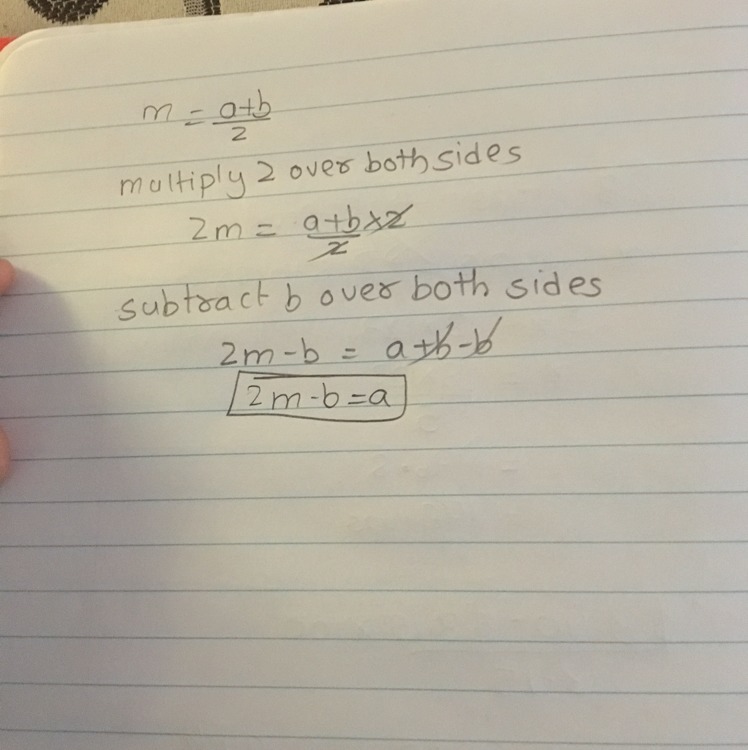 m = a+b/2
multiply 2 over both sides
2m = a+b×2/2
subtract b over both sides
2m-b = a+b-b
2m-b=a